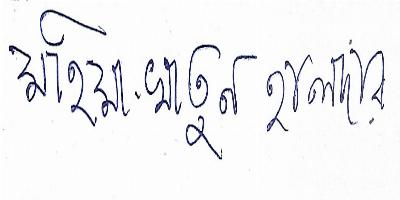 মহিমা খাতুন হালদার